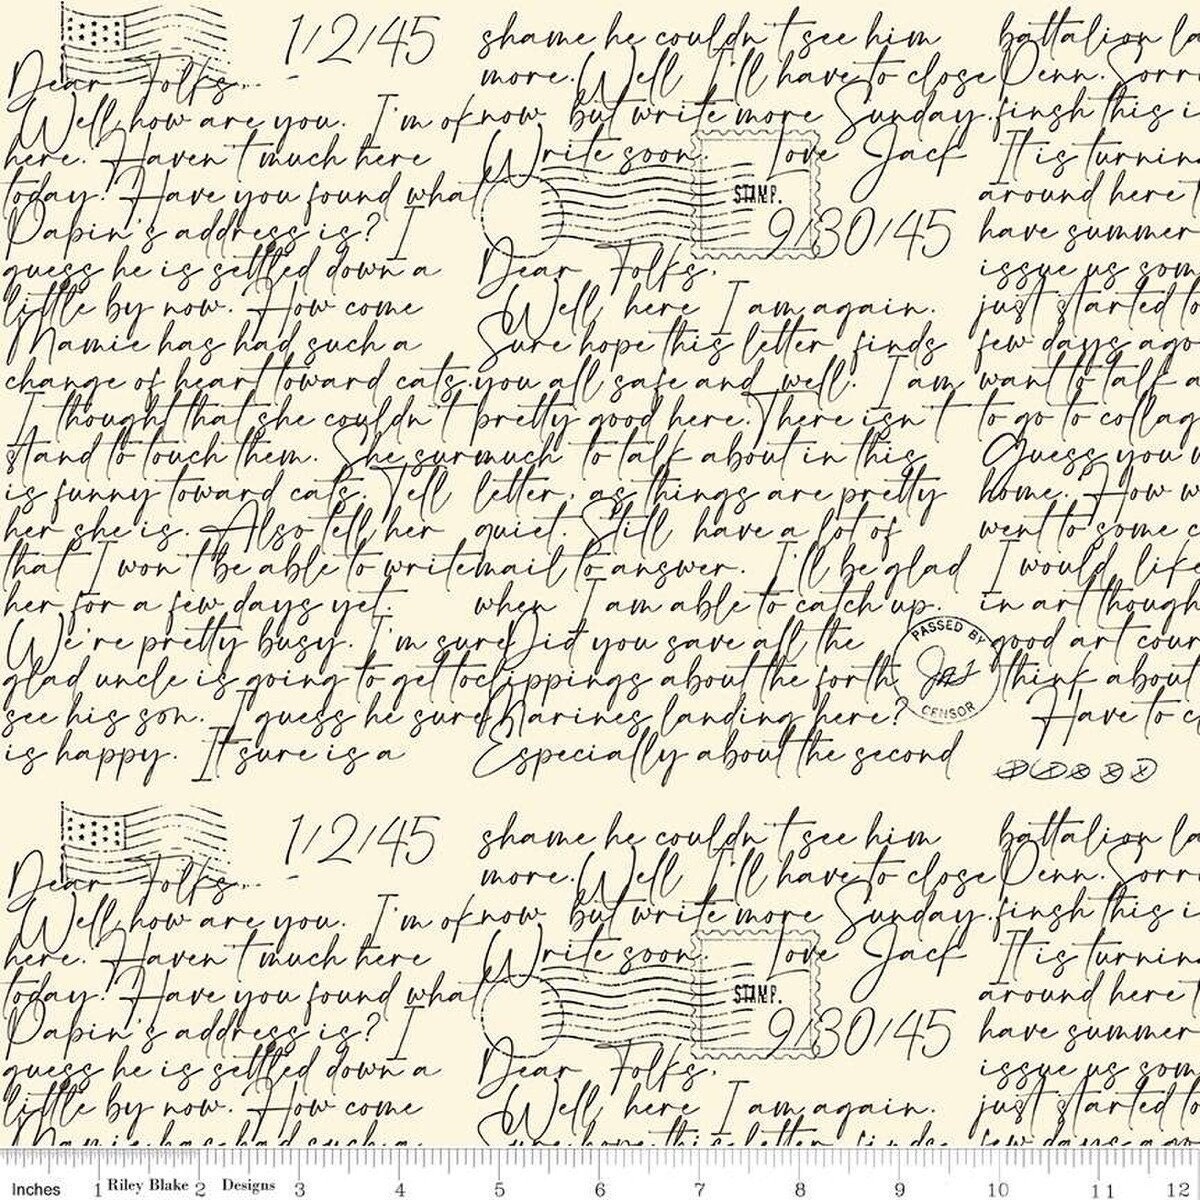 1/2/45
Dear Folks,
Well, how are you. I'm ok
here. Haven't much here
today. Have you found what
Dabin's address is? I
guess he is settled down a
little by now. How come
Mamie has had such a
change of heart toward cats.
I thought that she couldn't
stand to touch them. She sur
is funny toward cats. Tell
her she is. Also tell her
that I won't be able to write
her for a few days yet.
We're pretty busy. I'm sure
glad uncle is going to get to
see his son. I guess he sure
is happy. It sure is a
shame he couldn't see him
more. Well I'll have to close
now but write more Sunday.
Write soon. Love Jack
STAMP.
9/30/45
Dear Folks,
Well, here I am again.
Sure hope this letter finds
you all safe and well. I am
pretty good here. There isn't
much to talk about in this
letter, as things are pretty
quiet. Still have a lot of
mail to answer. I'll be glad
when I am able to catch up.
Did you save all the
clippings about the forth
Marines landing here?
Especially about the second
PASSED BY
CENSOR
battalion la
Penn. Sorr
finsh this i
It is turnin
around here t
have summer
issue us som
just started to
few days ago
want to talk a
to go to collag
Guess you w
home. How w
went to some c
I would like
in art though
good art cour
think about
Have to c
1/2/45
Dear Folks,
Well, how are you. I'm ok
here. Haven't much here
today. Have you found what
Dabin's address is? I
guess he is settled down a
little by now. How come
Mamie has had such a
shame he couldn't see him
more. Well I'll have to close
now but write more Sunday.
Write soon. Love Jack
STAMP.
9/30/45
Dear Folks,
Well, here I am again.
Sure hope this letter finds
battalion la
Penn. Sorr
finsh this i
It is turnin
around here t
have summer
issue us som
just started to
few days ago
Inches 1 Riley Blake 2 Designs 3 4 5 6 7 8 9 10 11 12